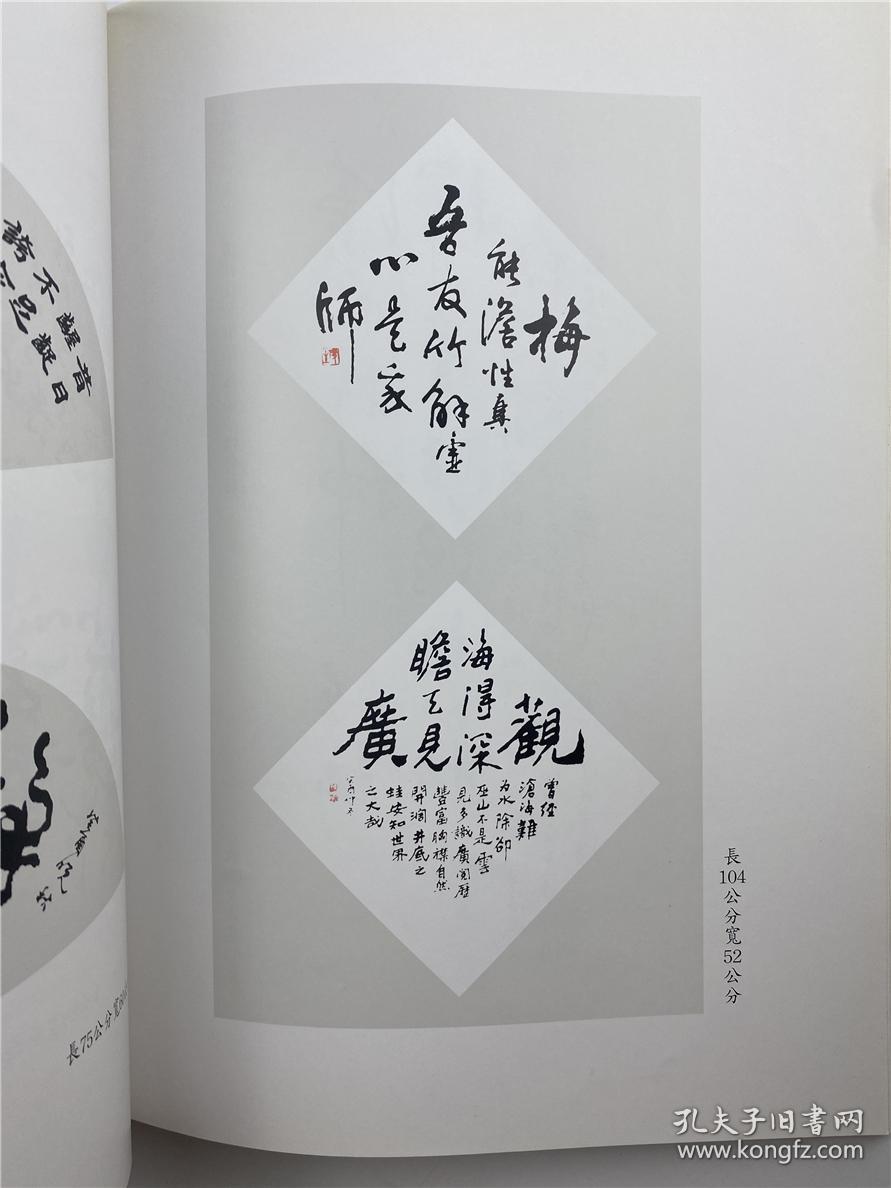 昔日
齷齪
不足
誇
長75公分寬
梅
能澹性真
吾友竹解虛
心是我
師
觀
海得深
瞻天見
廣
曾經
滄海難
为水除卻
巫山不是雲
見多識廣閱歷
豐富胸襟自然
開濶井底之
蛙安知世界
之大哉
長104公分寬52公分
孔夫子旧书网
www.kongfz.com